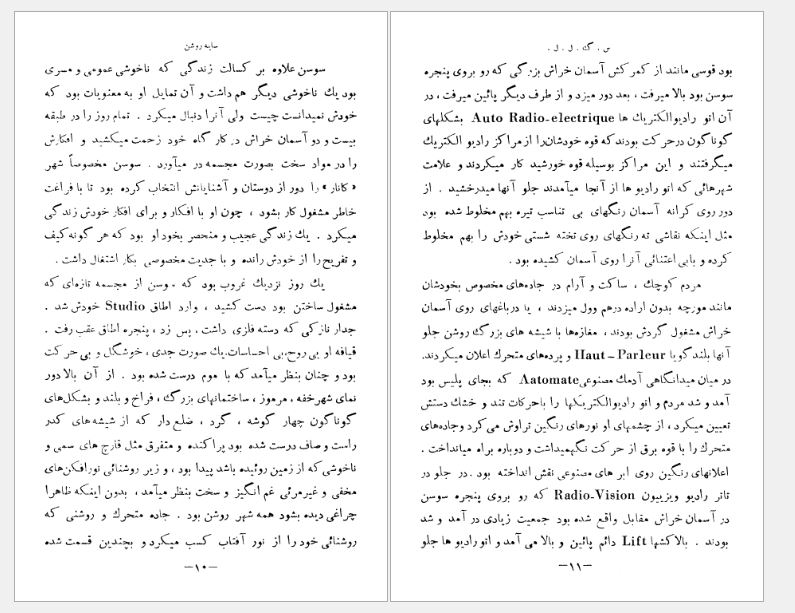 سایه روشن
سوسن علاوه بر کسالت زندگی که ناخوشی عمومی و مسری
بود یك ناخوشی دیگر هم داشت و آن تمایل او به معنویات بود که
خودش نمیدانست چیست ولی آنرا دنبال میکرد . تمام روز را در طبقه
بیست و دو آسمان خراش در کار گاه خود زحمت میکشید و افکارش
را در مواد سخت بصورت مجسمه در میآورد . سوسن مخصوصاً شهر
«کانار» را دور از دوستان و آشنایانش انتخاب کرده بود تا با فراغت
خاطر مشغول کار بشود ، چون او با افکار و برای افکار خودش زندگی
میکرد . یك زندگی عجیب و منحصر بخود او بود که هر گونه کیف
و تفریح را از خودش رانده و با جدیت مخصوصی بکار اشتغال داشت .
یك روز نزدیك غروب بود که سوسن از مجسمه تازه‌ای که
مشغول ساختن بود دست کشید ، وارد اطاق Studio خودش شد .
جدار نازکی که دسته فلزی داشت ، پس زد ، پنجره اطاق عقب رفت .
قیافه او بی‌روح،بی احساسات،یك صورت جدی ، خوشگل و بی حرکت
بود و چنان بنظر میآمد که با موم درست شده بود . از آن بالا دور
نمای شهرخفه ، مرموز ، ساختمانهای بزرگ ، فراخ و بلند و بشکل‌های
گوناگون چهار گوشه ، گرد ، ضلع دار که از شیشه‌های کدر
راست و صاف درست شده بود پراکنده و متفرق مثل قارچ های سمی و
ناخوشی که از زمین روئیده باشد پیدا بود ، و زیر روشنائی نورافکن‌های
مخفی و غیرمرئی غم انگیز و سخت بنظر میآمد ، بدون اینکه ظاهرا
چراغی دیده بشود همه شهر روشن بود . جاده متحرك و روشنی که
روشنائی خود را از نور آفتاب کسب میکرد و بچندین قسمت شده
—۱۰—
س . گ . ل . ل .
بود قوسی مانند از کمر کش آسمان خراش بزرگی که رو بروی پنجره
سوسن بود بالا میرفت ، بعد دور میزد و از طرف دیگر پائین میرفت ، در
آن اتو رادیوالکتریك ها Auto Radio-electrique بشکلهای
گوناگون درحرکت بودند که قوه خودشان‌را از مراکز رادیو الکتریك
میگرفتند و این مراکز بوسیله قوه خورشید کار میکردند و علامت
شهرهائی که اتو رادیو ها از آنجا میآمدند جلو آنها میدرخشید . از
دور روی کرانه آسمان رنگهای بی تناسب تیره بهم مخلوط شده بود
مثل اینکه نقاشی ته رنگهای روی تخته شستی خودش را بهم مخلوط
کرده و بابی اعتنائی آنرا روی آسمان کشیده بود .
مردم کوچك ، ساکت و آرام در جاده‌های مخصوص بخودشان
مانند مورچه بدون اراده درهم وول میزدند ، یا درباغهای روی آسمان
خراش مشغول گردش بودند ، مغازه‌ها با شیشه های بزرگ روشن جلو
آنها بلند گو با Haut – Parleur و پرده‌های متحرك اعلان میکردند.
در میان میدانگاهی آدمك مصنوعی Aatomate که بجای پلیس بود
آمد و شد مردم و اتو رادیوالکتریکها را باحرکات تند و خشك دستش
تعیین میکرد ، از چشمهای او نورهای رنگین تراوش می کرد وجاده‌های
متحرك را با قوه برق از حرکت نگهمیداشت و دوباره براه میانداخت .
اعلانهای رنگین روی ابر های مصنوعی نقش انداخته بود . در جلو در
تاتر رادیو ویزیبیون Radio-Vision که رو بروی پنجره سوسن
در آسمان خراش مقابل واقع شده بود جمعیت زیادی در آمد و شد
بودند . بالاکشها Lift دائم پائین و بالا می آمد و اتو رادیو ها جلو
—۱۱—